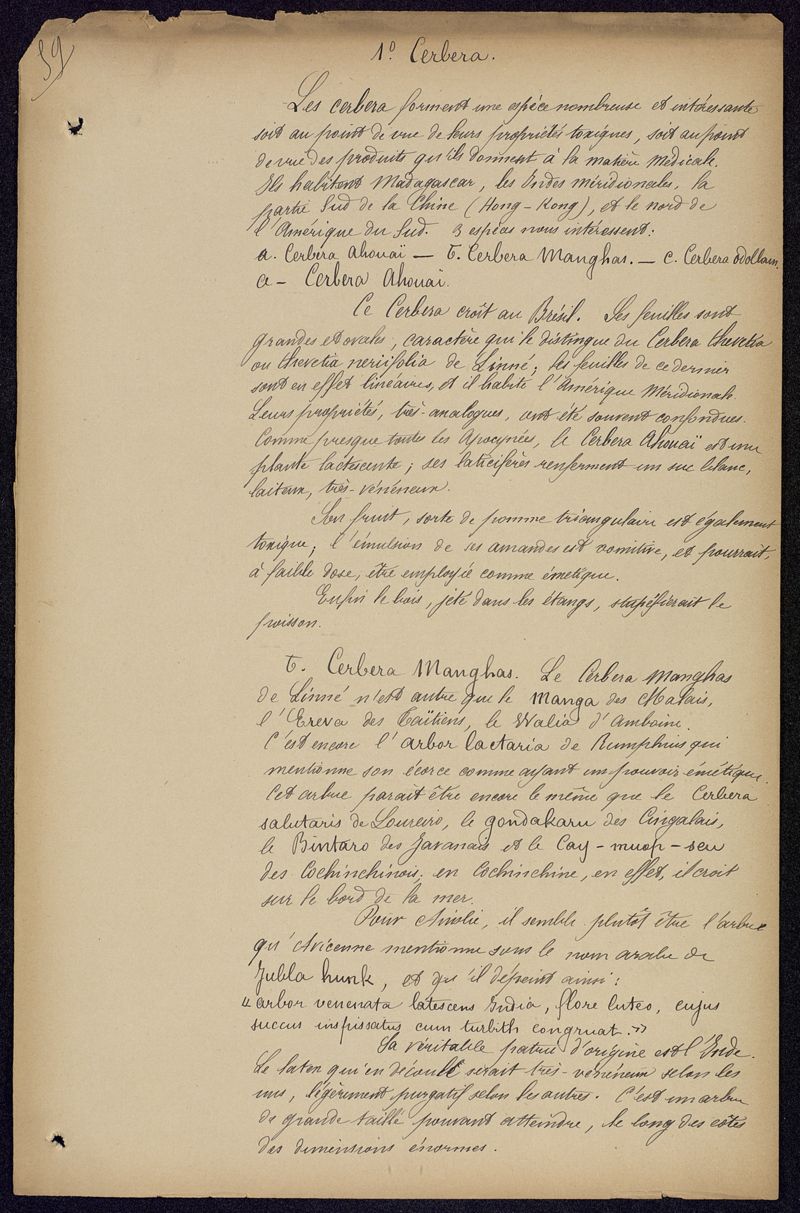 59
1º Cerbera.
Les cerbera forment une espèce nombreuse et intéressante
soit au point de vue de leurs propriétés toxiques, soit au point
de vue des produits qu'ils donnent à la matière médicale.
Ils habitent Madagascar, les Indes méridionales, la
partie Sud de la Chine (Hong-Kong), et le nord de
l'Amérique du Sud. 3 espèces nous intéressent:
a. Cerbera Ahouaï — b. Cerbera Manghas. — c. Cerbera odollam.
a - Cerbera Ahouaï.
Ce Cerbera croît au Brésil. Ses feuilles sont
grandes et ovales, caractère qui le distingue du Cerbera thevetia
ou thevetia neriifolia de Linné; les feuilles de ce dernier
sont en effet linéaires, et il habite l'Amérique Méridionale.
Leurs propriétés, très-analogues, ont été souvent confondues.
Comme presque toutes les Apocynées, le Cerbera Ahouaï est une
plante lactescente; ses laticifères renferment un suc blanc,
laiteux, très-vénéneux.
Son fruit, sorte de pomme triangulaire est également
toxique; l'émulsion de ses amandes est vomitive, et pourrait,
à faible dose, être employée comme émétique.
Enfin le bois, jeté dans les étangs, stupéfierait le
poisson.
b. Cerbera Manghas. Le Cerbera Manghas
de Linné n'est autre que le Manga des Malais,
l'Ereva des Taïtiens, le Walia d'Amboine.
C'est encore l'arbor lactaria de Rumphius qui
mentionne son écorce comme ayant un pouvoir émétique.
Cet arbre parait être encore le même que le Cerbera
salutaris de Loureiro, le gondakaru des Cingalais,
le Bintaro des Javanais et le Cay-muop-seu
des Cochinchinois; en Cochinchine, en effet, il croit
sur le bord de la mer.
Pour Ainslie, il semble plutôt être l'arbre
qu'Avicenne mentionne sous le nom arabe de
Jubla hunk, et qu'il dépeint ainsi:
« arbor venenata latescens India, flore luteo, cujus
succus inspissatus cum turbith congruat. »
Sa véritable patrie d'origine est l'Inde.
Le latex qui en découle serait très-vénéneux selon les
uns, légèrement purgatif selon les autres. C'est un arbre
de grande taille pouvant atteindre, le long des côtes
des dimensions énormes.